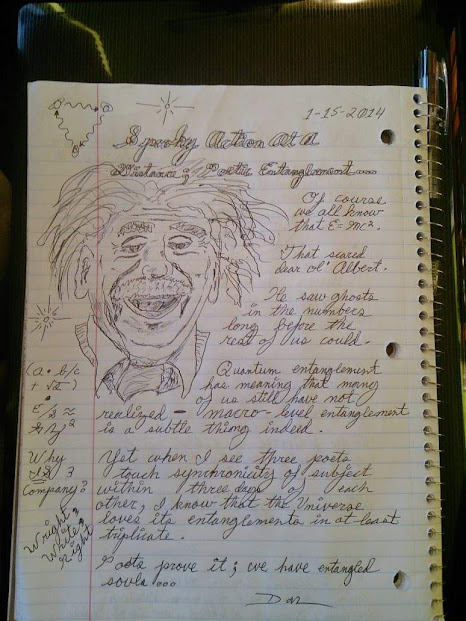 1-15-2014
Spooky Action At A
Distance ; Poetic Entanglement...
Of course
we all know
that E=mc².
That scared
dear ol' Albert.
He saw ghosts
in the numbers
long before the
rest of us could.
Quantum entanglement
has meaning that many
of us still have not
realized - macro-level entanglement
is a subtle thing indeed.
Yet when I see three poets
touch synchronicity of subject
within three days of each
other, I know that the Universe
loves its entanglements in at least
triplicate.
Poets prove it; we have entangled
souls...
(a • b/c
+ √2)
Why
3
Company?
Wright?
White?
Right